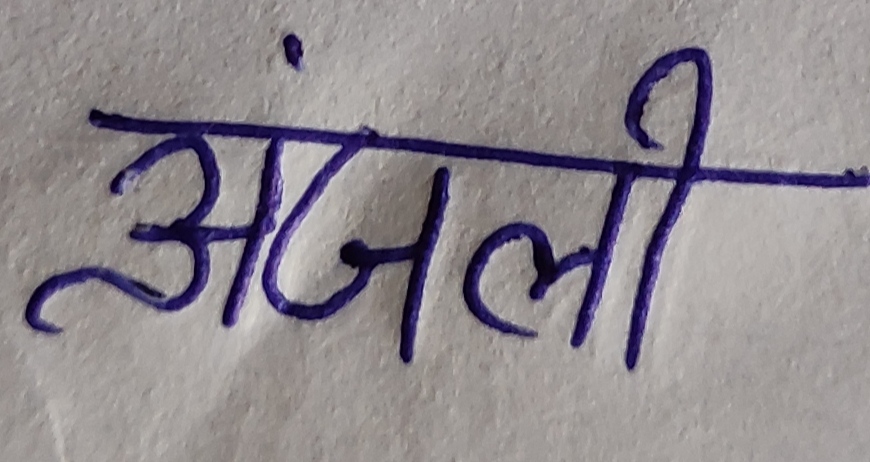 अंजली